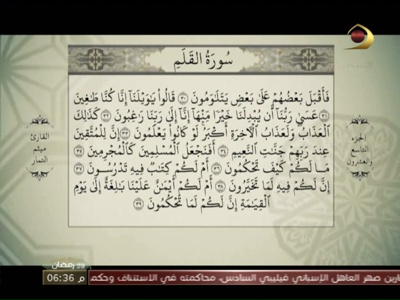 سُورَةُ القَلَمِ
فَأَقْبَلَ بَعْضُهُمْ عَلَىٰ بَعْضٍ يَتَلَاوَمُونَ ٣٠ قَالُوا يَٰوَيْلَنَا إِنَّا كُنَّا طَٰغِينَ
٣١ عَسَىٰ رَبُّنَا أَن يُبْدِلَنَا خَيْرًا مِّنْهَا إِنَّا إِلَىٰ رَبِّنَا رَٰغِبُونَ ٣٢ كَذَٰلِكَ
الْعَذَابُ وَلَعَذَابُ الْآخِرَةِ أَكْبَرُ لَوْ كَانُوا يَعْلَمُونَ ٣٣ إِنَّ لِلْمُتَّقِينَ
عِندَ رَبِّهِمْ جَنَّٰتِ النَّعِيمِ ٣٤ أَفَنَجْعَلُ الْمُسْلِمِينَ كَالْمُجْرِمِينَ ٣٥
مَا لَكُمْ كَيْفَ تَحْكُمُونَ ٣٦ أَمْ لَكُمْ كِتَٰبٌ فِيهِ تَدْرُسُونَ ٣٧
إِنَّ لَكُمْ فِيهِ لَمَا تَخَيَّرُونَ ٣٨ أَمْ لَكُمْ أَيْمَٰنٌ عَلَيْنَا بَٰلِغَةٌ إِلَىٰ يَوْمِ
الْقِيَٰمَةِ إِنَّ لَكُمْ لَمَا تَحْكُمُونَ ٣٩
الجزء
التاسع
والعشرون
القارئ
ميثم
التمار
29 رمضان
06:36 م
صهر العاهل الإسباني فيليبي السادس، محاكمته في الاستئناف وحكم